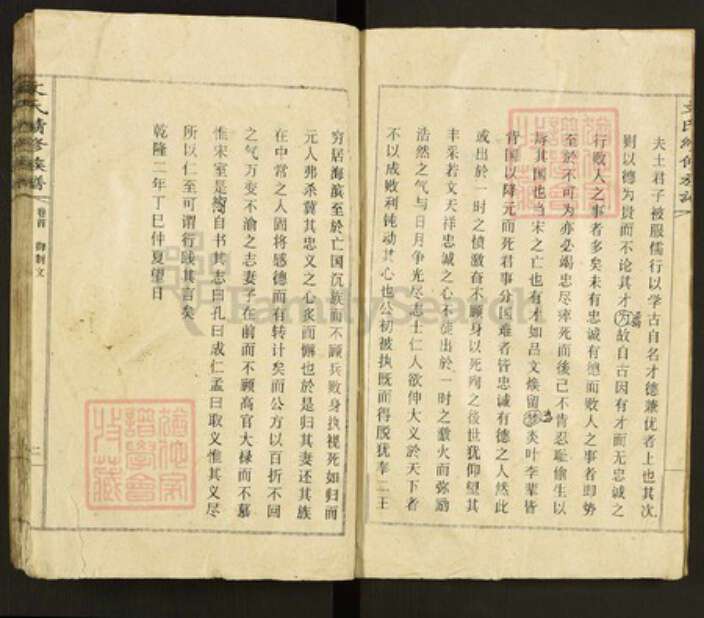 夫士君子被服儒行以学古自名才德兼优者上也其次
则以德为贵而不论其才故自古因有才而无忠诚之
行败人之事者多矣未有忠诚有德而败人之事者即势
至於不可为亦必竭忠尽瘁死而後己不肯忍耻偷生以
辱其国也当宋之亡也有才如吕文焕留梦炎叶李辈皆
背国以降元而死君事分国难者皆忠诚有德之人然此
或出於一时之愤激奋不顾身以死殉之後世犹仰望其
丰采若文天祥忠诚之心不徒出於一时之激火而弥励
浩然之气与日月争光尽志士仁人欲伸大义於天下者
不以成败利钝动其心也公初被执既而得脱犹奉二王
穷居海滨至於亡国沉族而不顾兵败身执视死如归而
元人弗杀冀其忠义之心炙而懈也於是归其妻还其族
在中常之人固将感德而有转计矣而公方以百折不回
之气万变不渝之志妻子在前而不顾高官大禄而不慕
惟宋室是自书其志曰孔曰成仁孟曰取义惟其义尽
所以仁至可谓行践其言矣
乾隆二年丁巳仲夏望日
文氏續修族譜
卷首 御制文
FamilySearch